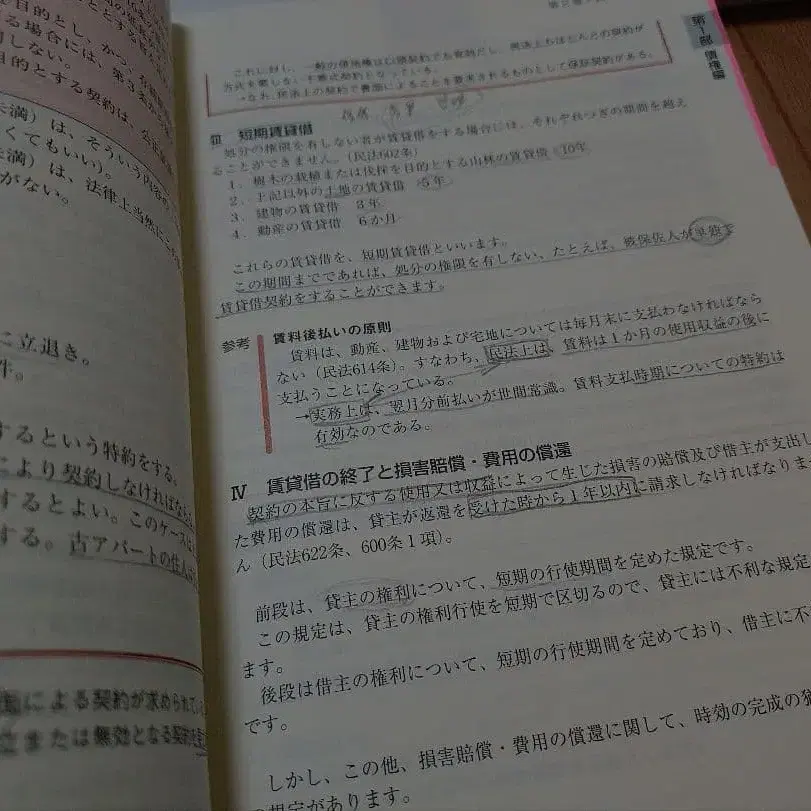 第1部 債権編
これに対し、一般の借地権は口頭契約でも有効だし、民法上もほとんどの契約が
方式を要しない不要式契約となっている。
なお、民法上の契約で書面によることを要求されるものとして保証契約がある。
Ⅲ 短期賃貸借
処分の権限を有しない者が賃貸借をする場合には、それぞれつぎの期間を超え
ることができません。(民法602条)
1. 樹木の栽植または伐採を目的とする山林の賃貸借 10年
2. 上記以外の土地の賃貸借 5年
3. 建物の賃貸借 3年
4. 動産の賃貸借 6か月
これらの賃貸借を、短期賃貸借といいます。
この期間までであれば、処分の権限を有しない、たとえば、被保佐人が単独で
賃貸借契約をすることができます。
参考
賃料後払いの原則
賃料は、動産、建物および宅地については毎月末に支払わなければなら
ない(民法614条)。すなわち、民法上は、賃料は1か月の使用収益の後に
支払うことになっている。
→実務上は、翌月分前払いが世間常識。賃料支払時期についての特約は
有効なのである。
Ⅳ 賃貸借の終了と損害賠償・費用の償還
契約の本旨に反する使用又は収益によって生じた損害の賠償及び借主が支出し
た費用の償還は、貸主が返還を受けた時から1年以内に請求しなければなりませ
ん(民法622条、600条1項)。
前段は、貸主の権利について、短期の行使期間を定めた規定です。
この規定は、貸主の権利行使を短期で区切るので、貸主には不利な規定
ます。
後段は借主の権利について、短期の行使期間を定めており、借主に不
です。
しかし、この他、損害賠償・費用の償還に関して、時効の完成の猶
規定があります。
目的とし、かつ
る場合には、第3条
しない。
目的とする契約は、公正
未満)は、そういう内容の
くてもいい)。
未満)は、法律上当然に
がない。
に立退き。
件。
するという特約をする。
により契約しなければならない
するとよい。このケースは
する。古アパートの住人
による契約が求められて
または無効となる契約